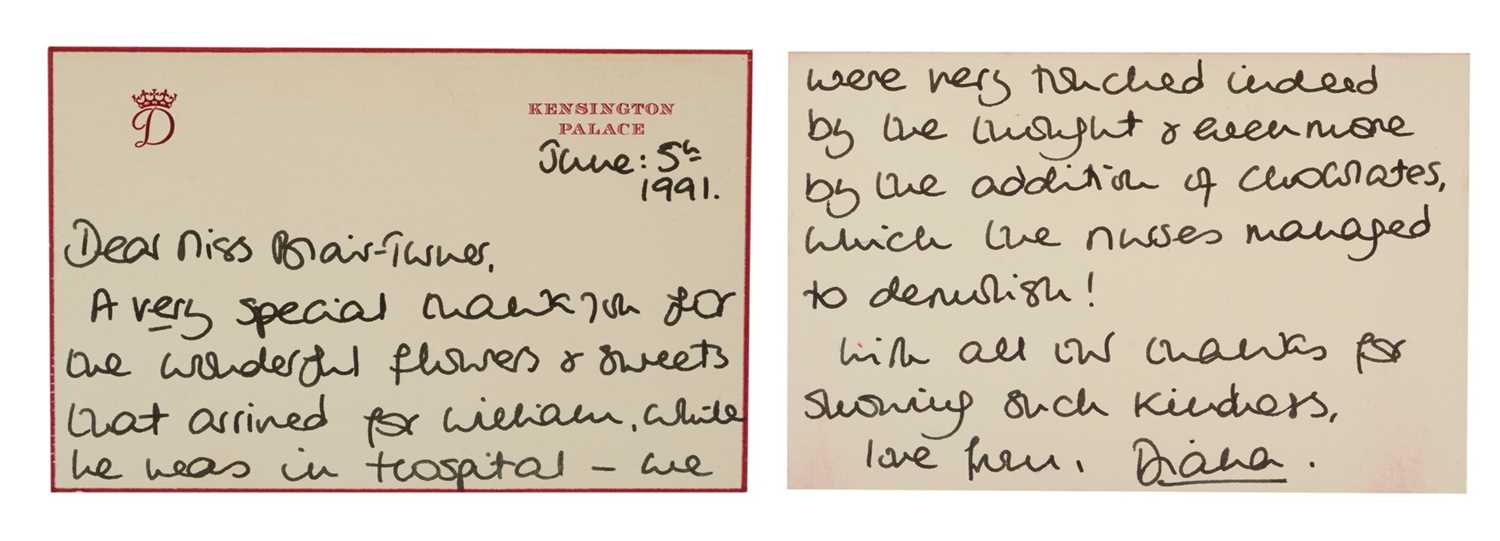 D
KENSINGTON
PALACE
June: 5th
1991.
Dear Miss Blair-Turner,
A very special thank you for
the wonderful flowers & sweets
that arrived for William, while
he was in Hospital - we
were very touched indeed
by the thought & even more
by the addition of chocolates,
which the nurses managed
to demolish!
With all our thanks for
showing such kindness,
love from, Diana.